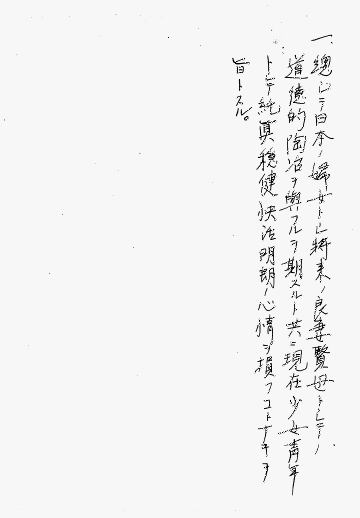 一、總ジテ日本ノ婦女トシ將来ノ良妻賢母トシテノ
道徳的陶冶ヲ與フルヲ期スルト共ニ現在少女青年
トシテ純真穏健快活明朗ノ心情ヲ損フコトナキヲ
旨トスル。